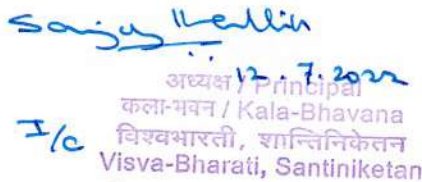 Sanjoy Mallik
12.7.2022
अध्यक्ष / Principal
कला-भवन / Kala-Bhavana
I/c
विश्वभारती, शान्तिनिकेतन
Visva-Bharati, Santiniketan